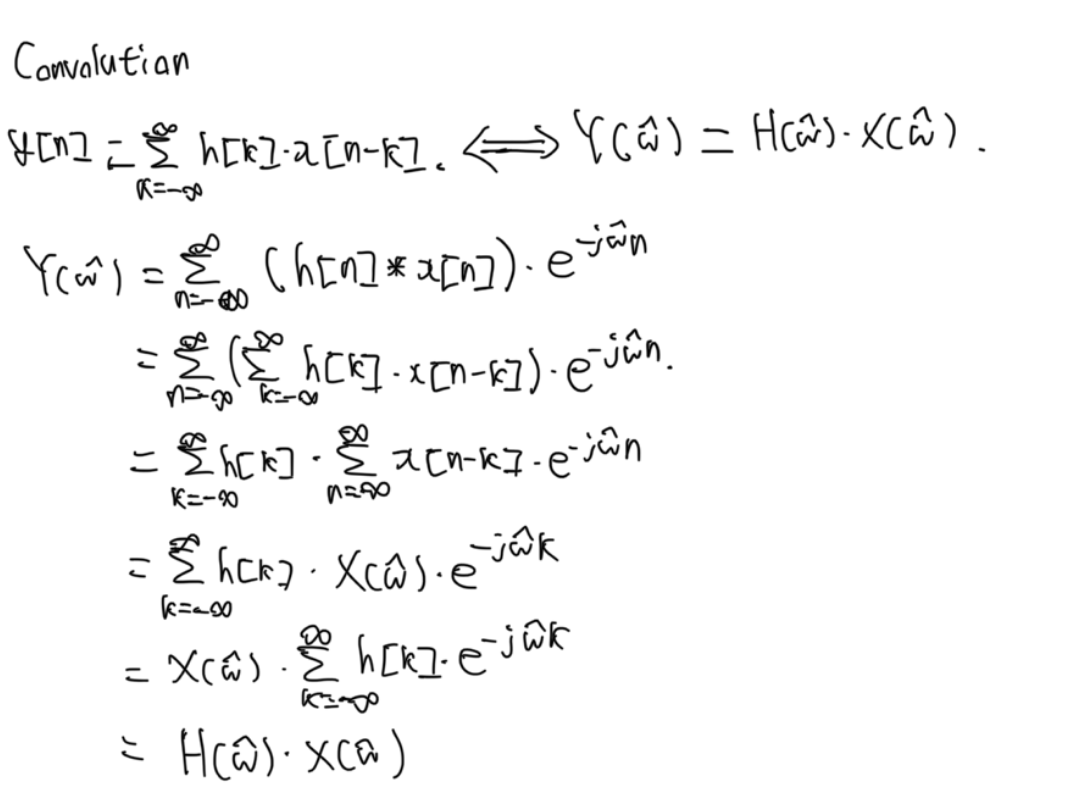 Convolution
y[n] = ∑_{k=-∞}^{∞} h[k]·x[n-k]. ⟺ Y(ω̂) = H(ω̂)·X(ω̂).
Y(ω̂) = ∑_{n=-∞}^{∞} (h[n]*x[n])·e^{-jω̂n}
= ∑_{n=-∞}^{∞} (∑_{k=-∞}^{∞} h[k]·x[n-k])·e^{-jω̂n}.
= ∑_{k=-∞}^{∞} h[k]·∑_{n=-∞}^{∞} x[n-k]·e^{-jω̂n}
= ∑_{k=-∞}^{∞} h[k]·X(ω̂)·e^{-jω̂k}
= X(ω̂)·∑_{k=-∞}^{∞} h[k]·e^{-jω̂k}
= H(ω̂)·X(ω̂)